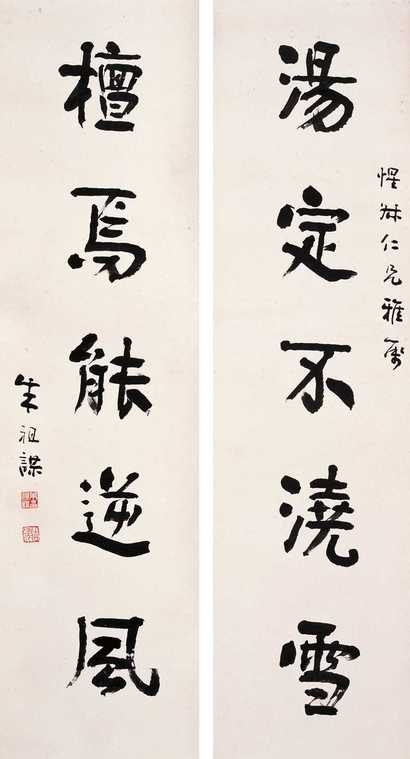 湯定不澆雪
惺牀仁兄雅屬
檀焉能逆風
朱祖謀